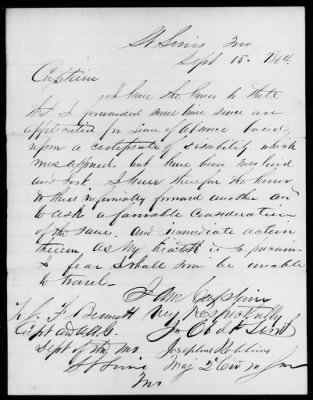 St Louis Mo
Sept 15. 1864.
Captain
I have the honor to state
that I forwarded some time since an
application for leave of absence based
upon a certificate of disability which
was approved. but have been
and lost. I have therefore the honor
to thus informally forward another and
to ask a favorable consideration
of the same. and immediate action
therein as my health is so
I fear I shall be unable
to travel.
I am Captain
Very Respectfully
Yr Obdt Servt
F Bennett
Capt and A.A.G.
Dept of the Mo
St Louis
Mo
Josephus Robbins
Maj 2